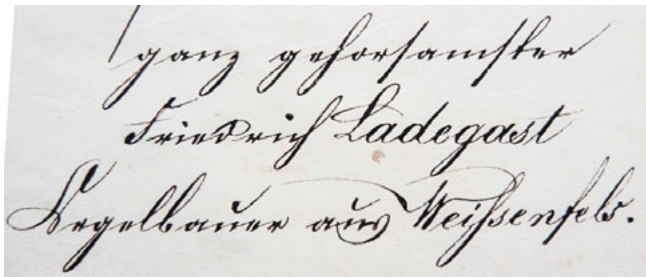 ganz gehorsamster
Friedrich Ladegast
Orgelbauer aus Weißenfels.